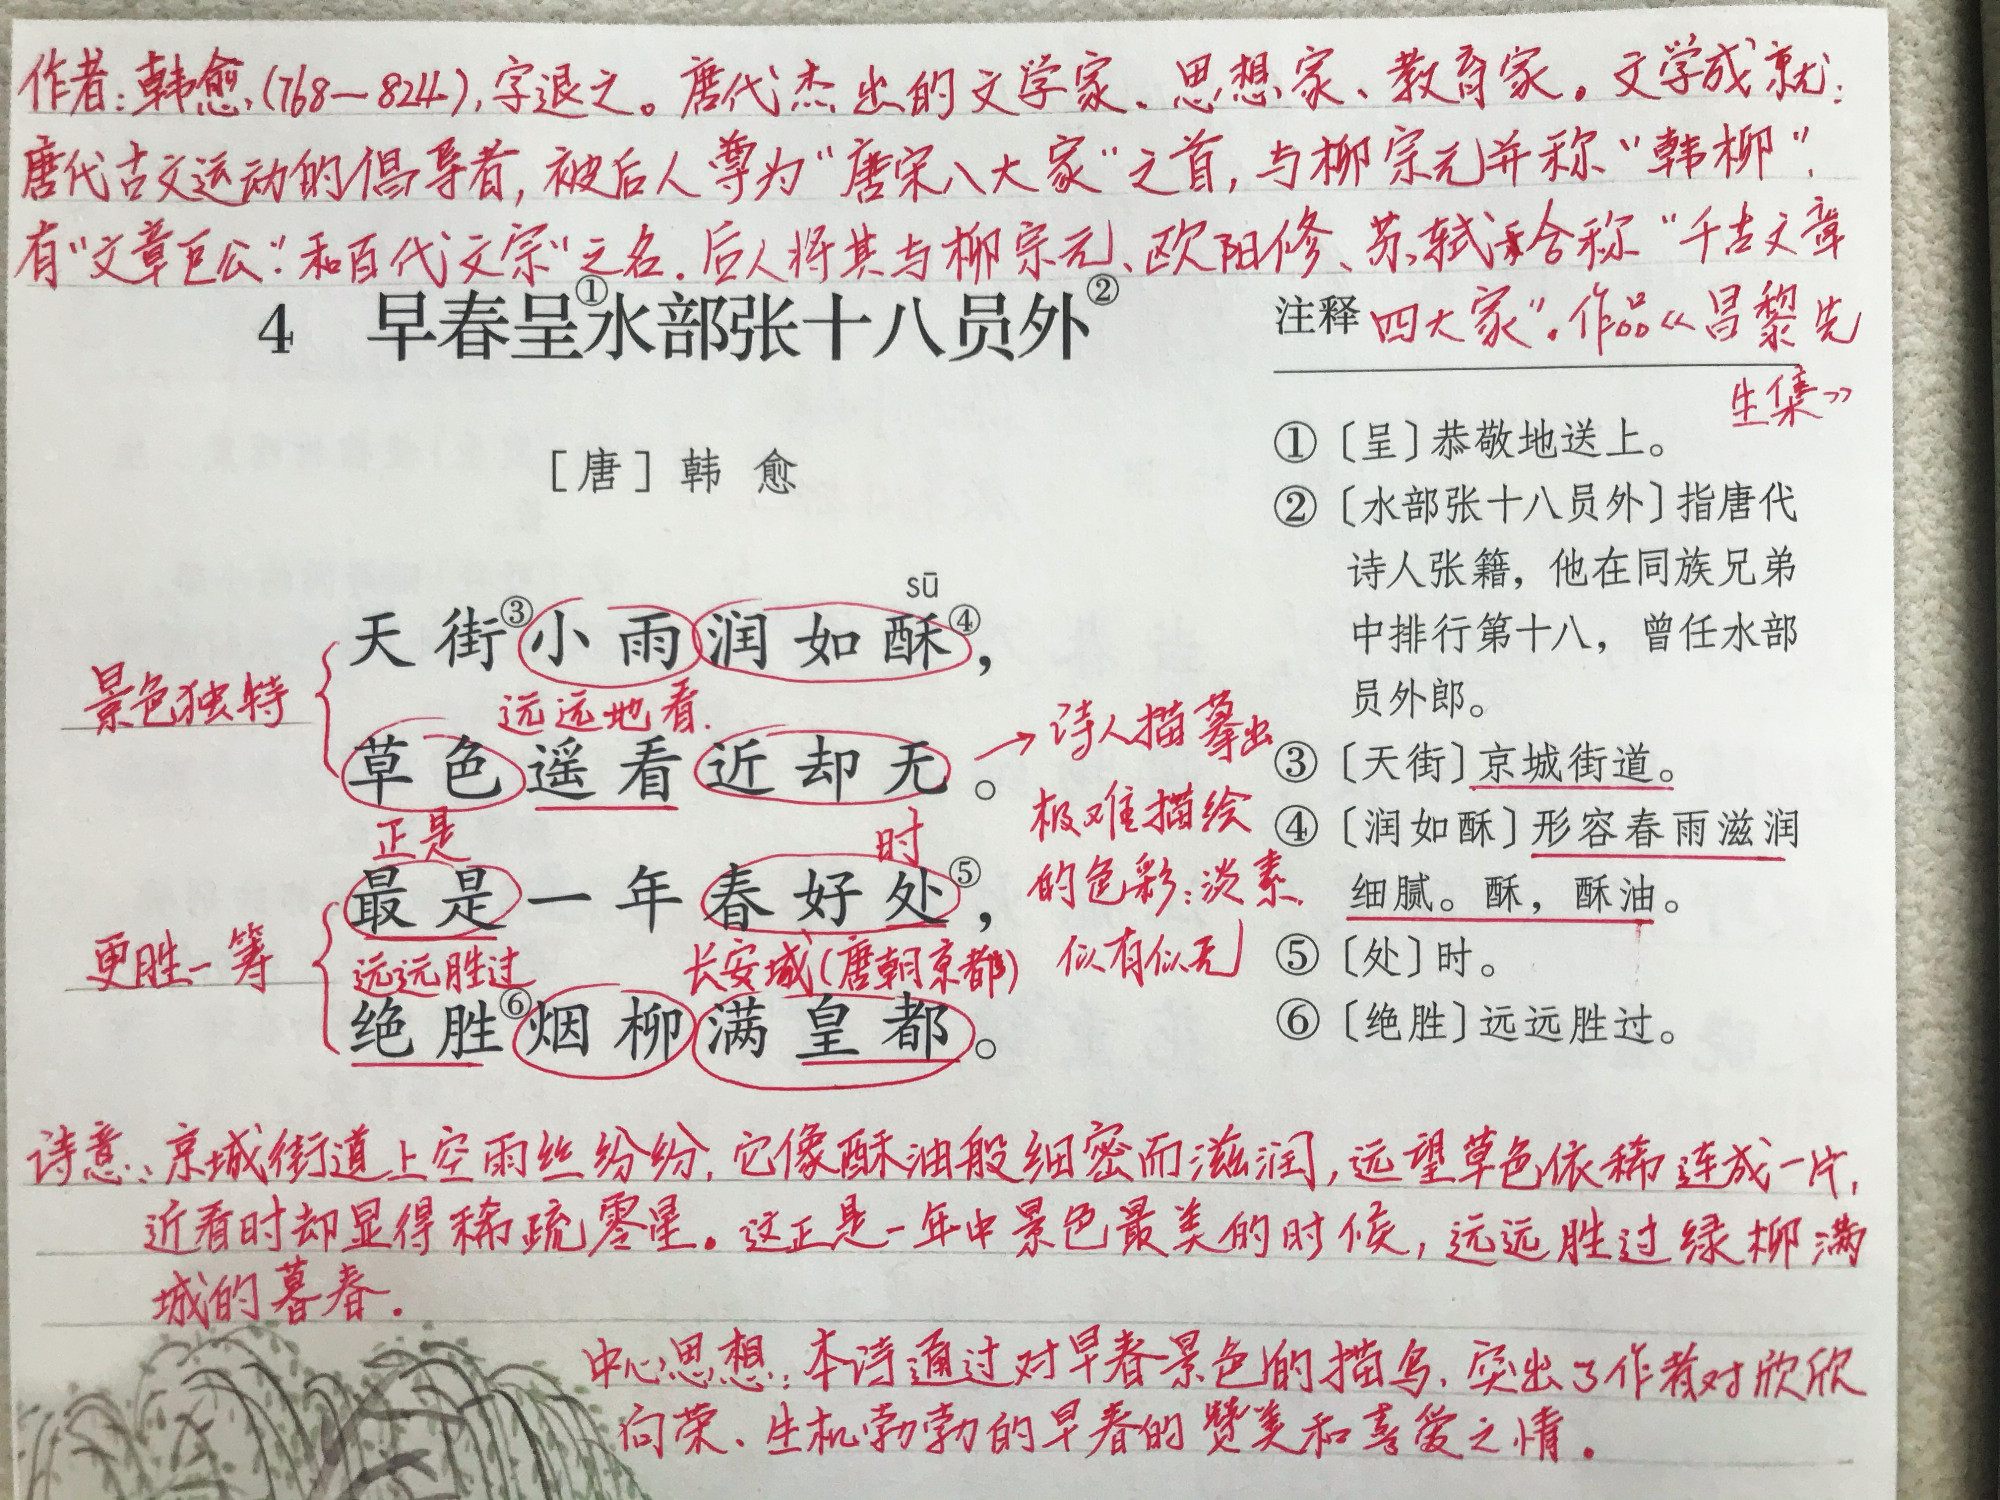 作者：韩愈，(768—824)，字退之。唐代杰出的文学家、思想家、教育家。文学成就：
唐代古文运动的倡导者，被后人尊为“唐宋八大家”之首，与柳宗元并称“韩柳”，
有“文章巨公”和百代文宗”之名。后人将其与柳宗元、欧阳修、苏轼合称“千古文章
四大家”。作品《昌黎先
生集》
4 早春呈①水部张十八员外②
［唐］韩 愈
sū
天街③小雨润如酥④，
远远地看.
草色遥看近却无。
景色独特
正是
时
最是一年春好处⑤，
远远胜过
长安城(唐朝京都)
绝胜⑥烟柳满皇都。
更胜一筹
诗人描摹出
极难描绘
的色彩：淡素.
似有似无
注释
①〔呈〕恭敬地送上。
②〔水部张十八员外〕指唐代
诗人张籍，他在同族兄弟
中排行第十八，曾任水部
员外郎。
③〔天街〕京城街道。
④〔润如酥〕形容春雨滋润
细腻。酥，酥油。
⑤〔处〕时。
⑥〔绝胜〕远远胜过。
诗意：京城街道上空雨丝纷纷，它像酥油般细密而滋润，远望草色依稀连成一片，
近看时却显得稀疏零星。这正是一年中景色最美的时候，远远胜过绿柳满
城的暮春.
中心思想：本诗通过对早春景色的描写，突出了作者对欣欣
向荣、生机勃勃的早春的赞美和喜爱之情。